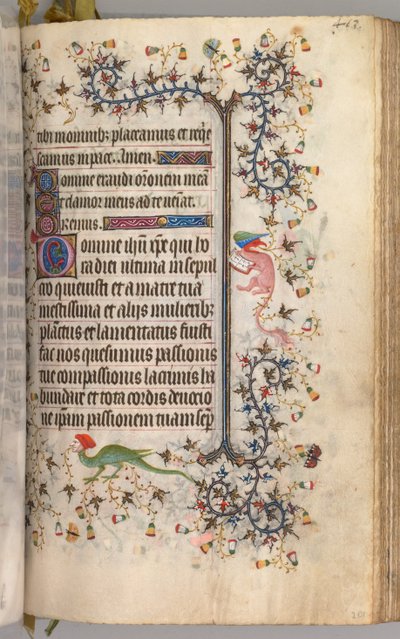 463.
tibi moribus placeamus et req̅e
scamus in pace. Amen.
Domine exaudi or̅onem mea̅
Et clamor meus ad te ueniat.
Oremus.
Domine ih̅u xp̅e qui ho
ra diei ultima in sepul
cro quieuisti et a matre tua
mestissima et alijs mulierib;
planctus et lamentatus fuisti
fac nos quesumus passionis
tue compassionis lacrimis ha
bundare et tota cordis deuocio
ne ip̅am passionem tuam sep̅
201